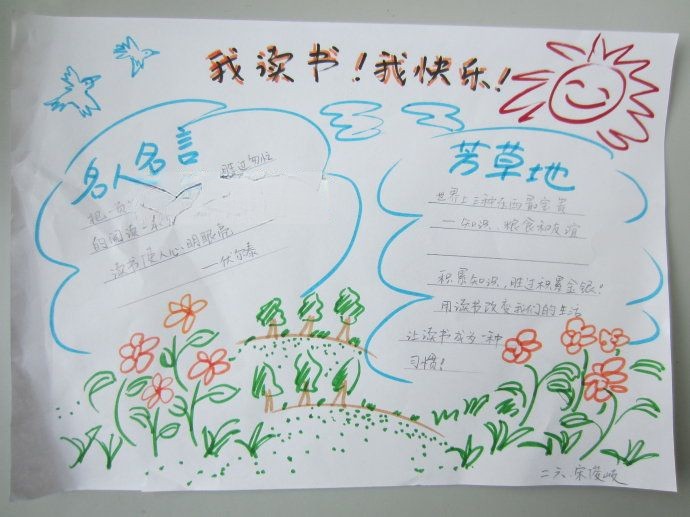 我读书！我快乐！
名人名言
胜过匆忙
把一页
的阅读一本
读书使人心明眼亮
——伏尔泰
芳草地
世界上三种东西最宝贵
——知识、粮食和友谊
积累知识，胜过积累金银！
用读书改变我们的生活
让读书成为一种
习惯！
二六.宋俊